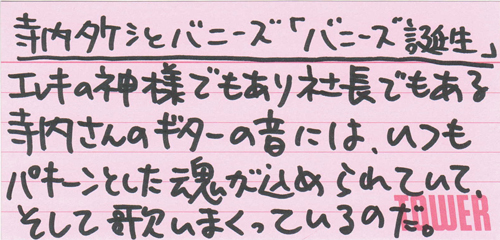 寺内タケシとバニーズ「バニーズ誕生」
エレキの神様でもあり社長でもある
寺内さんのギターの音には、いつも
パキーンとした魂が込められていて、
そして歌いまくっているのだ。
TOWER